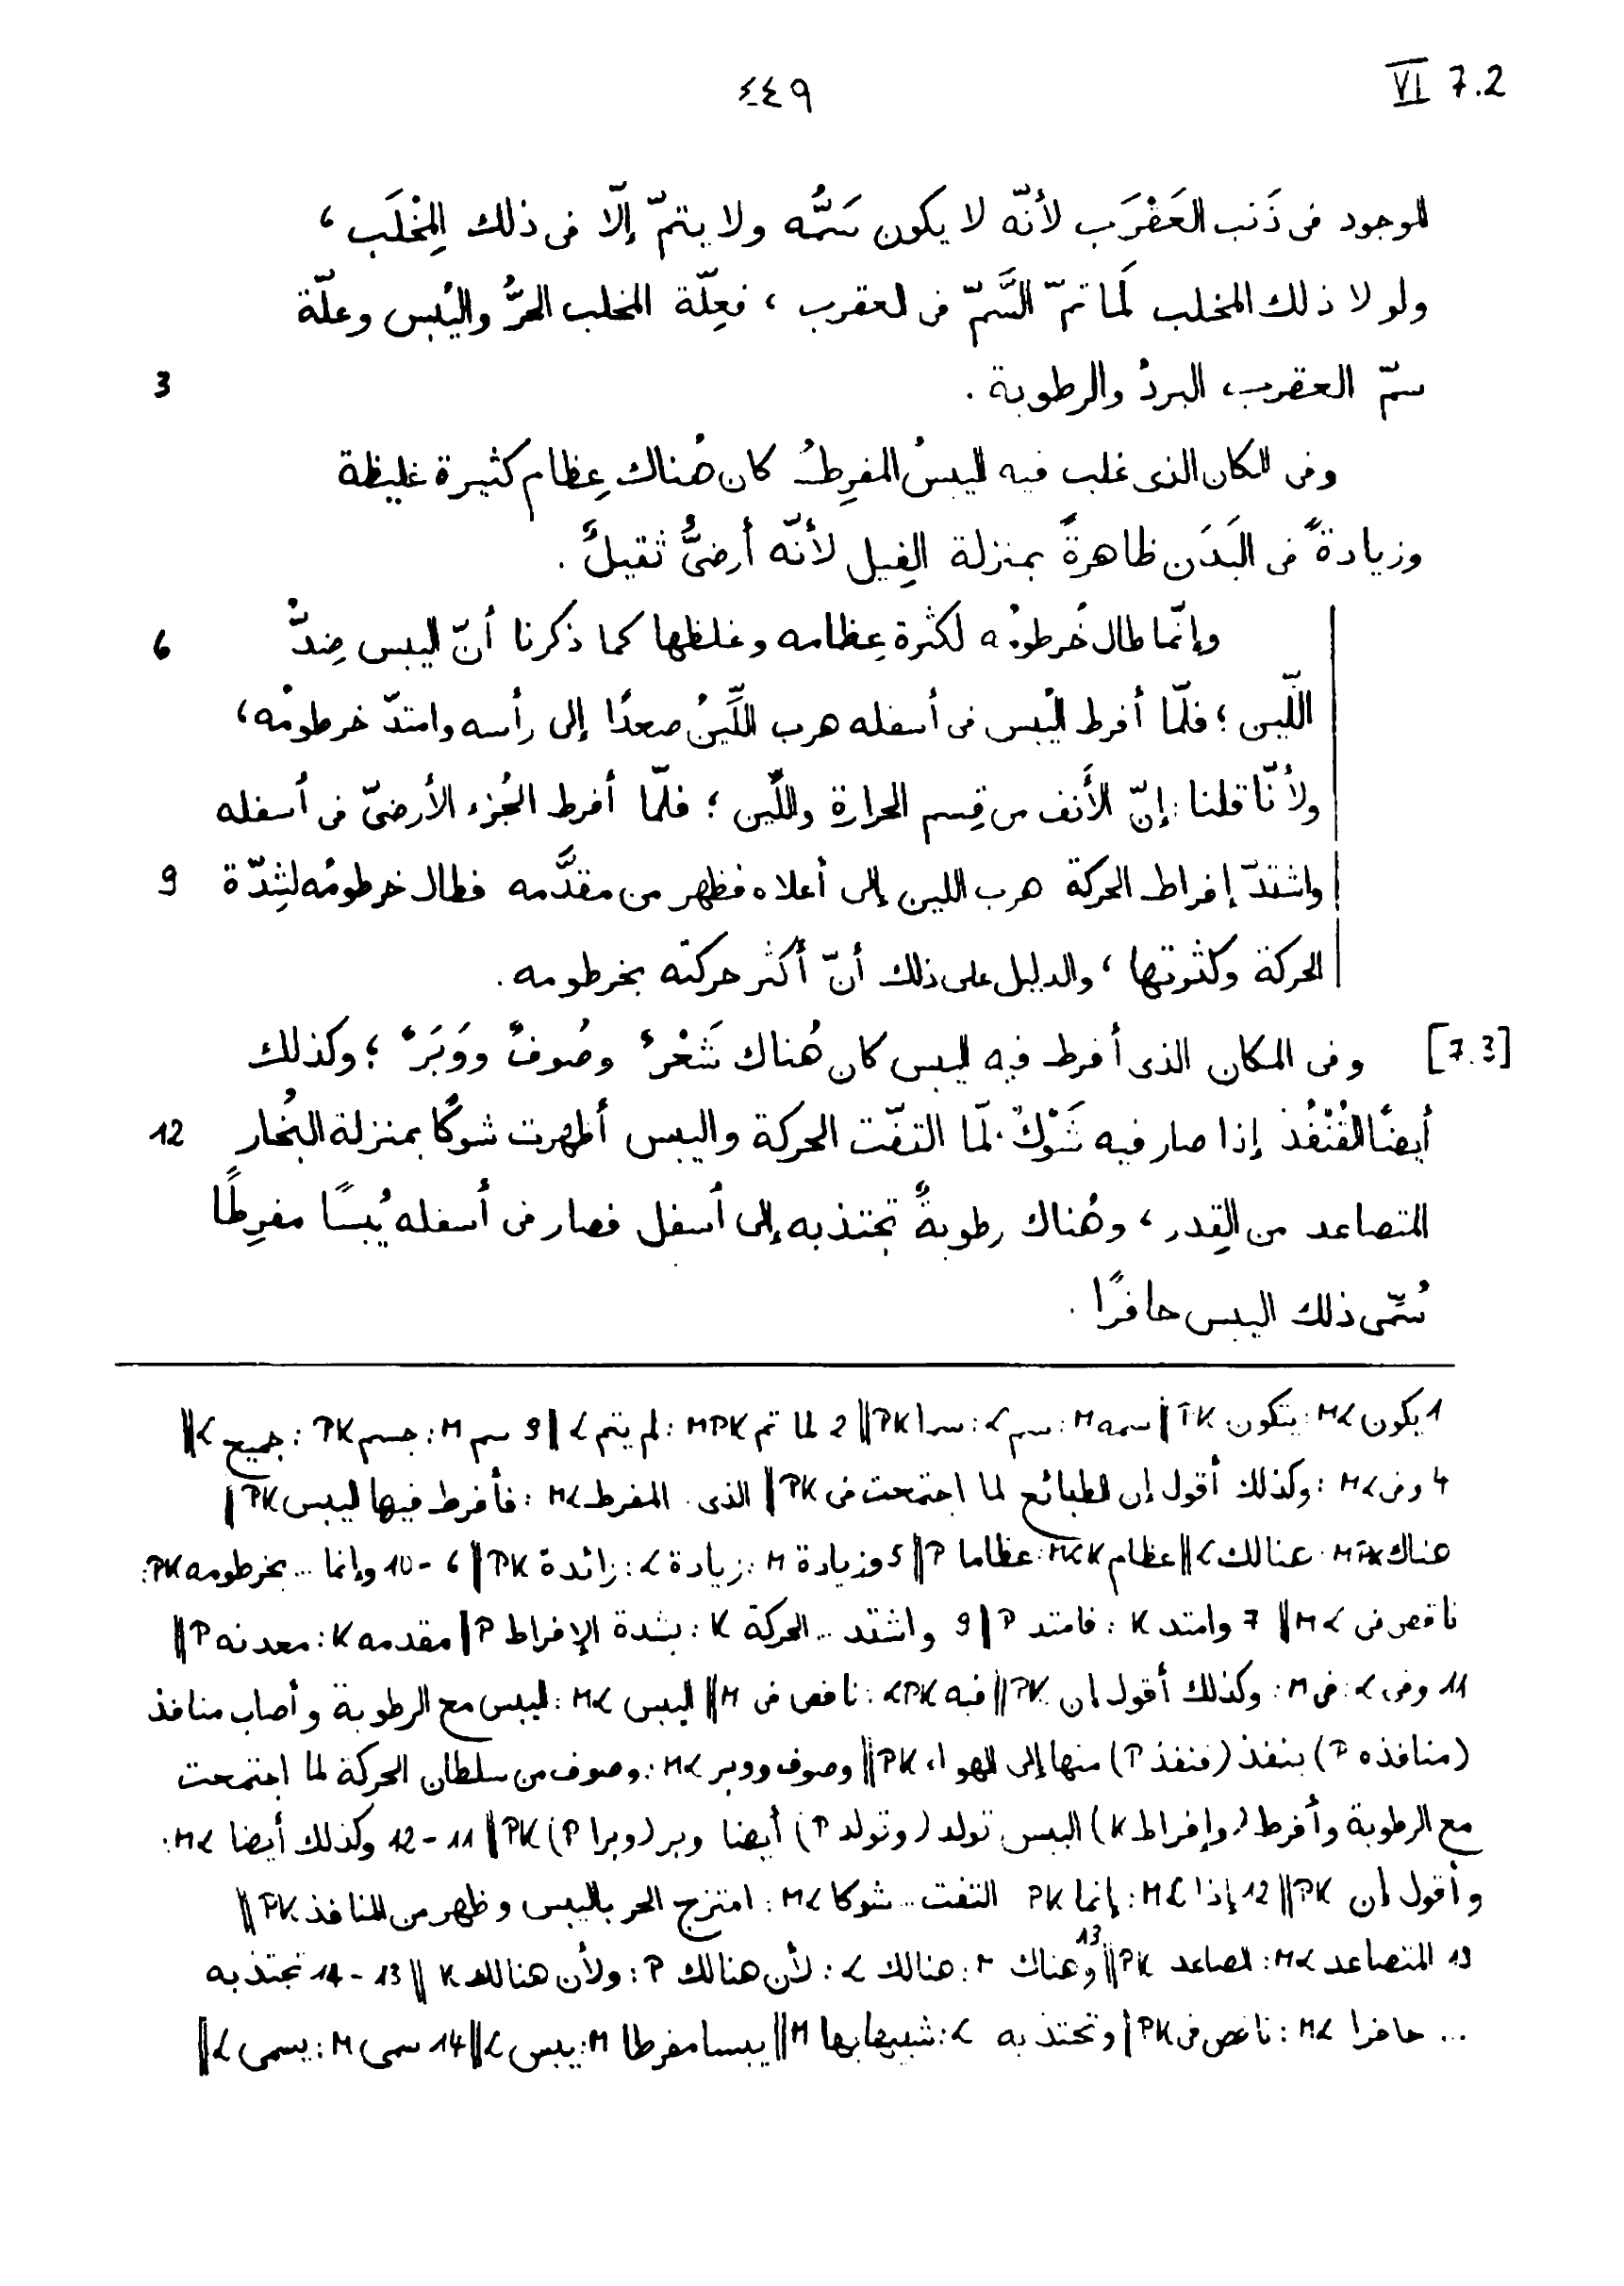 ٤٤٩
VI 7.2
الموجود فى ذَنب العَقْرَب لأنّه لا يكون سَمُّه ولا يتمّ إلّا فى ذلك المِخْلَب ،
ولو لا ذلك المخلب لَما تمّ السَّمّ فى العقرب ، فعِلّة المخلب الحرُّ واليُبس وعلّة
سمّ العقرب، البردُ والرطوبة . 3
وفى المكان الذى غلب فيه اليبسُ المفرِطُ كان هُناك عِظام كثيرة غليظة
وزيادةً فى البَدَن ظاهرةً بمنزلة الفِيل لأنّه أرضىٌّ ثقيلٌ .
وإنّما طال خُرطومُه لكثرة عِظامه وغلظها كما ذكرنا أنّ اليبس ضِدُّ 6
اللّين ؛ فلمّا أفرط اليُبس فى أسفله هرب اللِّينُ صعدًا إلى رأسه وامتدّ خرطومُه ،
ولأنّا قلنا : إنّ الأَنف من قِسم الحرارة واللِّين ؛ فلمّا أفرط الجُزء الأرضىّ فى أسفله
واشتدّ إفراط الحركة هرب اللين إلى أعلاه فظهر من مقدَّمه فطال خرطومُه لشِدّة 9
الحركة وكثرتها ، والدليل على ذلك أنّ أكثر حركته بخرطومه .
[7.3] وفى المكان الذى أفرط فيه اليبس كان هُناك شَعْرٌ وصُوفٌ ووَبَرٌ ؛ وكذلك
أيضًا القُنْفُذ إذا صار فيه شَوْكٌ . لمّا التفّت الحركة واليبس أظهرت شوكًا بمنزلة البُخار 12
المتصاعد من القِدر ، وهُناك رطوبةً تجتذبه إلى أسفل فصار فى أسفله يُبسًا مفرِطًا
سُمّى ذلك اليبس حافرًا .
1 يكون ML : يتكون PK | سمه M : سم L : سرا PK || 2 لما تم MPK : لم يتم L || 3 سم M : جسم PK : جميع L ||
4 وفى ML : وكذلك أقول إن الطبائع لما اجتمعت فى PK || الذى . المفرط ML : فأفرط فيها اليبس PK |
هناك MPK . هنالك L || عظام MLK : عظاما P || 5 وزيادة M : زيادة L : زائدة PK || 6 - 10 وإنما ... بخرطومه PK :
ناقص فى ML || 7 وامتد K : فامتد P || 9 واشتد ... الحركة K : بشدة الإفراط P | مقدمه K : معدنه P ||
11 وفى L : فى M : وكذلك أقول إن PK || فيه LPK : ناقص فى M || اليبس ML : اليبس مع الرطوبة وأصاب منافذ
(منافذه P) ينفذ (فنفذ P) منها إلى الهواء PK || وصوف ووبر ML : وصوف من سلطان الحركة لما اجتمعت
مع الرطوبة وأفرط (وإفراط K) اليبس تولد (وتولد P) أيضا وبر (وبرا P) PK || 11 - 12 وكذلك أيضا ML :
وأقول إن PK || 12 إذا ML : إنما PK التفت ... شوكا ML : امتزج الحر باليبس وظهر من المنافذ PK ||
13 المتصاعد ML : الصاعد PK || 13 وهناك M : هنالك L : لأن هنالك P : ولأن هنالك K || 13 - 14 تجتذبه
... حافرا ML : ناقص فى PK | وتجتذبه L : شبيها بها M || يبسا مفرطا M : يبس L || 14 سمى M : يسمى L ||